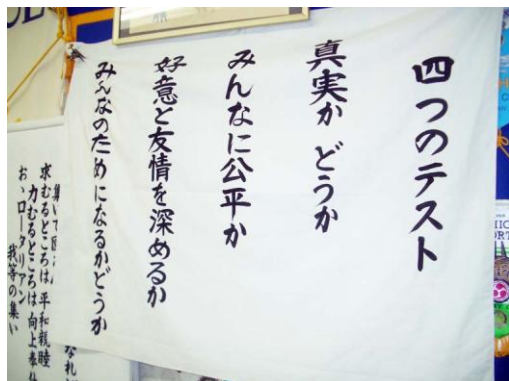 四つのテスト
真実か どうか
みんなに公平か
好意と友情を深めるか
みんなのためになるかどうか
求むるところは 平和親睦
力むるところは 向上奉仕
おゝロータリアン
我等の集い